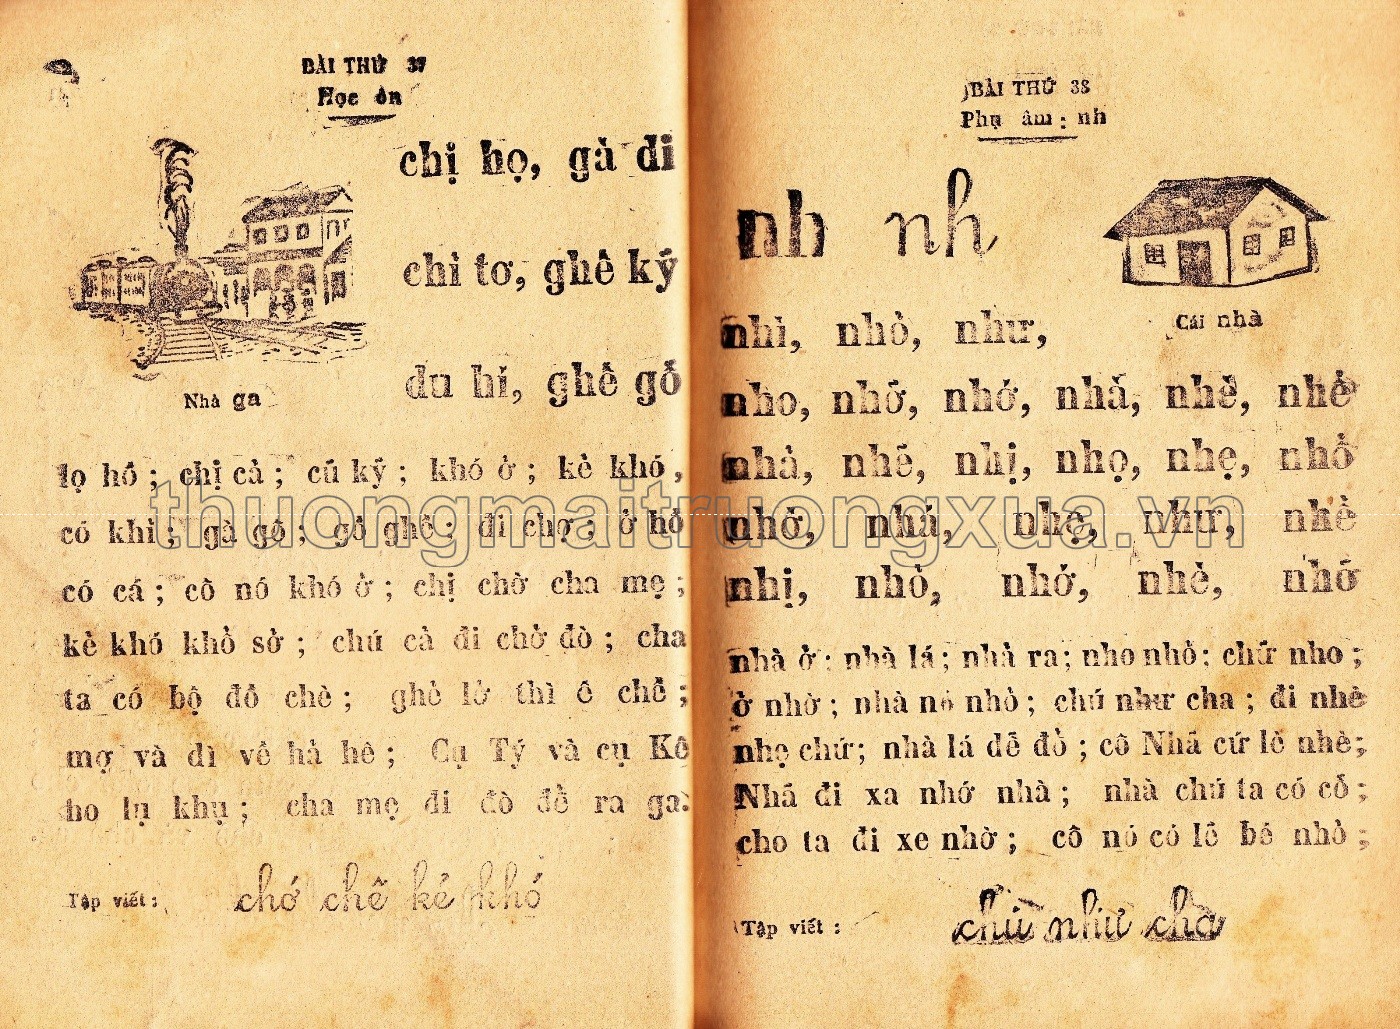 BÀI THỨ 37
Học ôn
chị họ, gà đi
chỉ tơ, ghế kỹ
du hí, ghế gỗ
Nhà ga
lọ hồ ; chị cả ; cũ kỹ ; khó ở ; kẻ khó,
có khi ; gà gô ; gồ ghề ; đi chợ ; ở hồ
có cá ; cô nó khó ở ; chị chờ cha mẹ ;
kẻ khó khổ sở ; chú cả đi chờ đò ; cha
ta có bộ đồ chè ; ghẻ lở thì ê chề ;
mợ và dì về hả hê ; Cụ Tý và cụ Kê
ho lụ khụ ; cha mẹ đi đò để ra ga.
Tập viết :
chớ chê kẻ khó
BÀI THỨ 38
Phụ âm : nh
nh nh
Cái nhà
nhì, nhỏ, như,
nho, nhỡ, nhớ, nhả, nhẽ,
nhà, nhẽ, nhị, nhọ, nhẹ, nhổ
nhờ, nhá, nhẹ, như,
nhị, nhỏ, nhớ, nhè,
nhà ở ; nhà lá ; nhà ra ; nho nhỏ ; chữ nho ;
ở nhờ ; nhà nó nhỏ ; chú như cha ; đi nhè
nhẹ chứ ; nhà lá dễ đổ ; cô Nhã cứ lè nhè ;
Nhã đi xa nhớ nhà ; nhà chú ta có cỗ ;
cho ta đi xe nhờ ; cô nó có lẽ bé nhỏ ;
Tập viết :
chú như cha
thuongmaitruongxua.vn